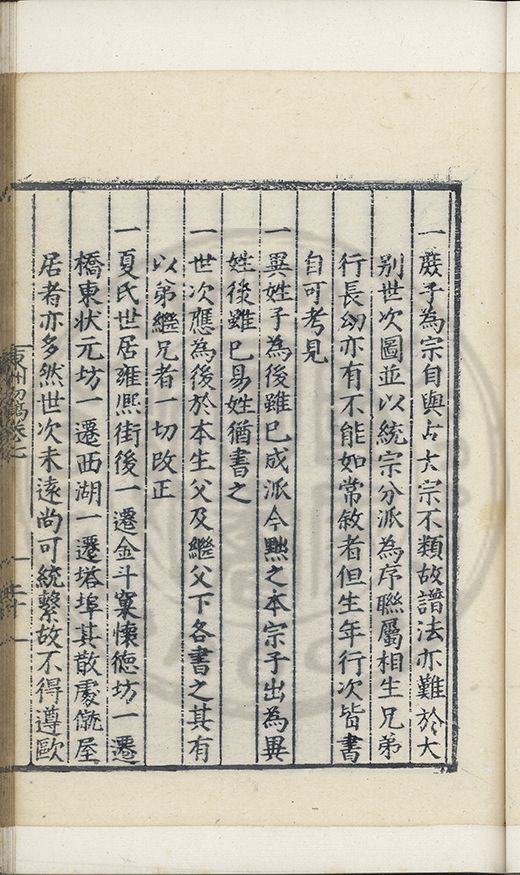 一庶子為宗自與古大宗不類故譜法亦難於大
別世次圖並以統宗分派為序聯屬相生兄弟
行長幼亦有不能如常敘者但生年行次皆書
自可考見
一異姓子為後雖已成派今黜之本宗子出為異
姓後雖已易姓猶書之
一世次應為後於本生父及繼父下各書之其有
以弟繼兄者一切改正
一夏氏世居雍熙街後一遷金斗窠懐徳坊一遷
橋東状元坊一遷西湖一遷塔埠其散處僦屋
居者亦多然世次未遠尚可統繫故不得遵歐